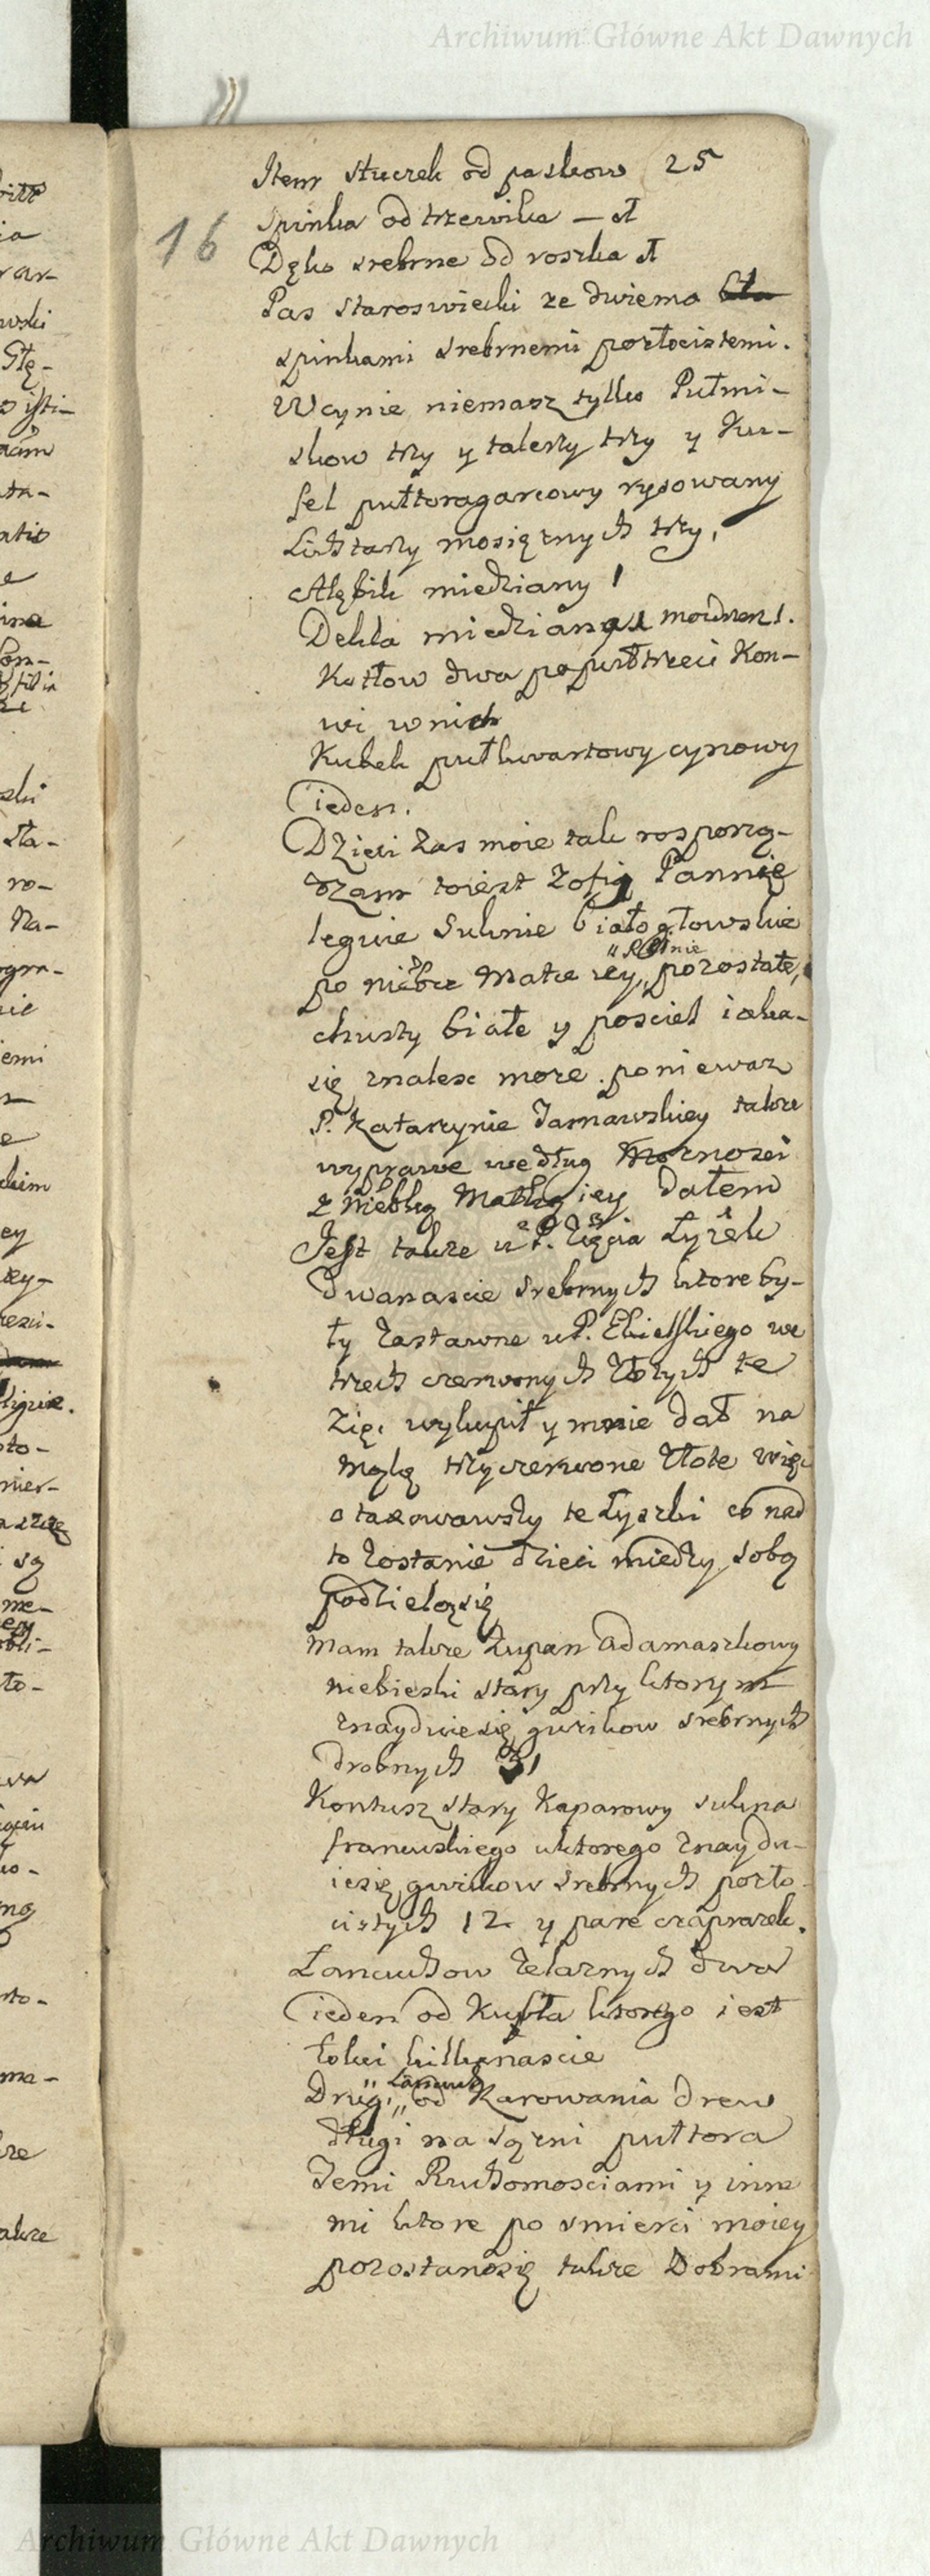 Archiwum Główne Akt Dawnych
Item stuczek od paskow 25
16
Spinka od trzewika — 1
Dęko srebrne od roszka 1
Pas staroswiecki ze dwiema
spinkami srebrnemi pozłocistemi.
W cynie niemasz tylko Pułmi-
skow trzy y talerzy trzy y Ku-
fel pułtoragarcowy rysowany
Lichtarzy mosięznych trzy,
Alębik miedziany 1
Dekla miedziana 1 mozdzerz 1.
Kotłow dwa po pułtrzeci Kon-
wi w nich
Kubek pułkwartowy cynowy
ieden.
Dzieci zas moie tak rosporzą-
dzam toiest Zofią Pannie
leguie Suknie białogłowskie
po niebce Matce iey, pozostałe,
chusty białe y posciel iaka-
się znalesc moze. poniewaz
P. Katarzynie Tarnawskiey takze
wyprawe według Moznosci
z niebką Matką iey dałem
Jest takze u P. Zięcia Łyzek
Dwanascie srebrnych ktore by-
ły zastawne u P. Ebielskiego we
trzech czerwonych złotych te
Zięc wykupił y mnie dał na
trzy czerwone złote więc
otaxowawszy te Łyszki co nad
to zostanie dzieci miedzy sobą
podzieląsię
Mam takze Zupan adamaszkowy
niebieski stary przy ktorym
znayduiesię guzikow srebrnych
drobnych 31
Kontusz stary Kaparowy sukna
francuskiego u ktorego znaydu-
iesię guzikow srebrnych pozło-
cistych 12 y pare czaprazek.
Lancuchow zelaznych dwa
ieden od Kubła ktorego iest
łokci kilkanascie
Drugi „Lancuch„ od Karowania drew
długi na sązni pułtora
Temi Ruchomosciami y inne
mi ktore po smierci moiey
pozostanąsię takze Dobrami
Archiwum Główne Akt Dawnych